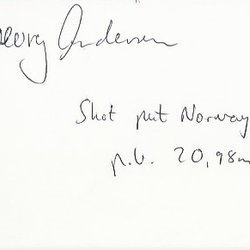 Georg Andersen
Shot put Norway
p.b. 20,98m